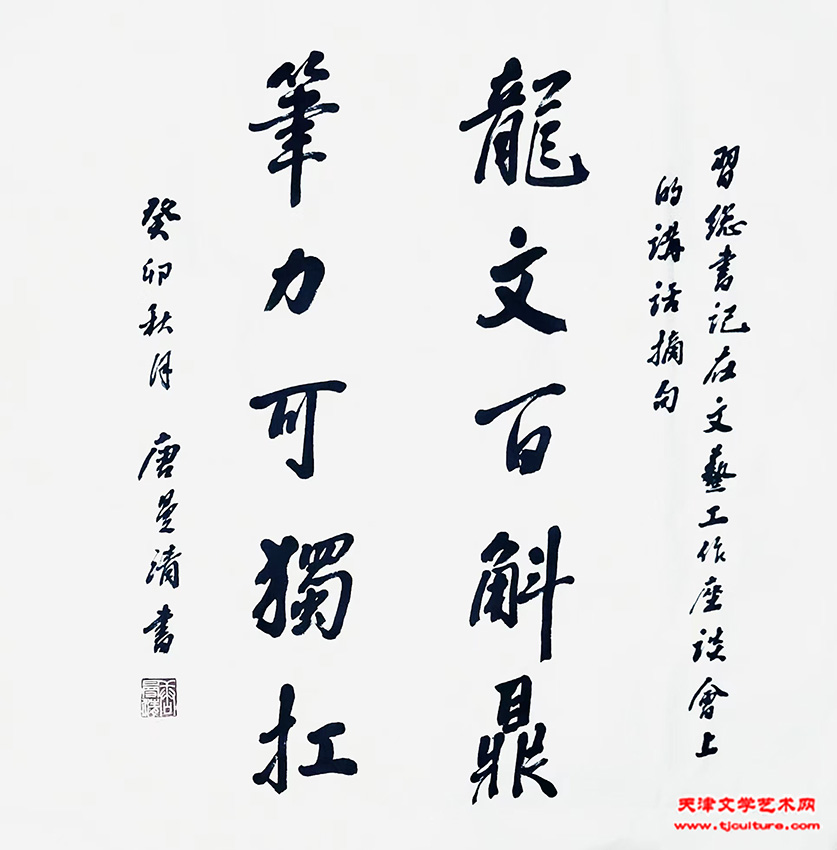 習總書记在文藝工作座谈會上
的講话摘句
龍文百斛鼎
筆力可獨扛
癸卯秋月 唐曼清書
天津文学艺术网
www.tjculture.com